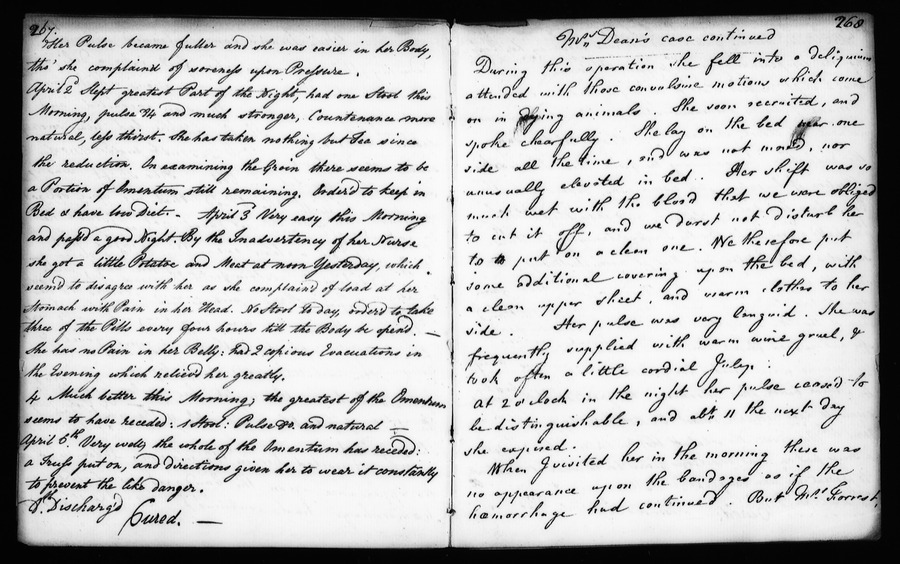 267.
Her Pulse became fuller and she was easier in her Body,
tho' she complaind of soreness upon Pressure.
April 2 Slept greatest Part of the Night, had one Stool this
Morning, pulse 94 and much stronger, Countenance more
natural, less thirst. She has taken nothing but Tea since
the reduction. On examining the Groin there seems to be
a Portion of Omentum still remaining. Orderd to keep in
Bed & have low Diet. - April 3 Very easy this Morning
and pass'd a good Night. By the Inadvertency of her Nurse
she got a little Potatoe and Meat at noon Yesterday, which
seem'd to disagree with her as she complain'd of load at her
Stomach with Pain in her Head. No Stool to day, order'd to take
three of the Pills every four hours till the Body be open'd. —
She has no Pain in her Belly: had 2 copious Evacuations in
the Evening which reliev'd her greatly.
4 Much better this Morning; the greatest of the Omentum
seems to have receded: 1 Stool: Pulse 80. and natural —
April 5th Very well; the whole of the Omentum has receded:
a Truss put on, and directions given her to wear it constantly
to prevent the like danger.
8th Discharg'd
Cured. —
268
Mrs Dean's case continued
During this operation she fell into a deliquium
attended with those convulsive motions which come
on in dying animals. She soon recruited, and
spoke chearfully. She lay on the bed near one
side all the time, and was not moved, nor
unusually elevated in bed. Her shift was so
much wet with the blood that we were obliged
to cut it off, and we durst not disturb her
to put on a clean one. We therefore put
some additional covering upon the bed, with
a clean upper sheet, and warm clothes to her
side. Her pulse was very languid. She was
frequently supplied with warm wine gruel, &
took often a little cordial Julep.
At 2 o'clock in the night her pulse ceased to
be distinguishable, and abt 11 the next day
she expired.
When I visited her in the morning there was
no appearance upon the bandages as if the
hæmorrhage had continued. But Mrs Forrest,